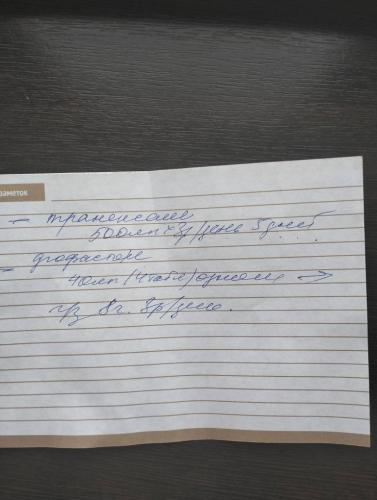 заметок
— транексам
500мг × 3р/день 5 дней
— дюфастон
40мг (4 табл) одном →
ч/з 8ч. 3р/день.